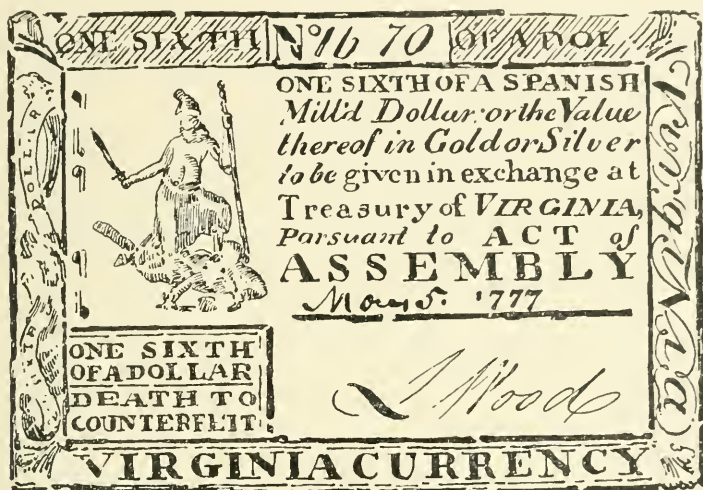 ONE SIXTH Nº 1670 OF A DOL
ONE SIXTH OF A SPANISH
Mill'd Dollar: or the Value
thereof in Gold or Silver
to be given in exchange at
Treasury of VIRGINIA,
Parsuant to ACT of
ASSEMBLY
May 5. 1777
ONE SIXTH
OF A DOLLAR
DEATH TO
COUNTERFEIT
J Wood
DOLLAR
VirgiNia
VIRGINIA CURRENCY